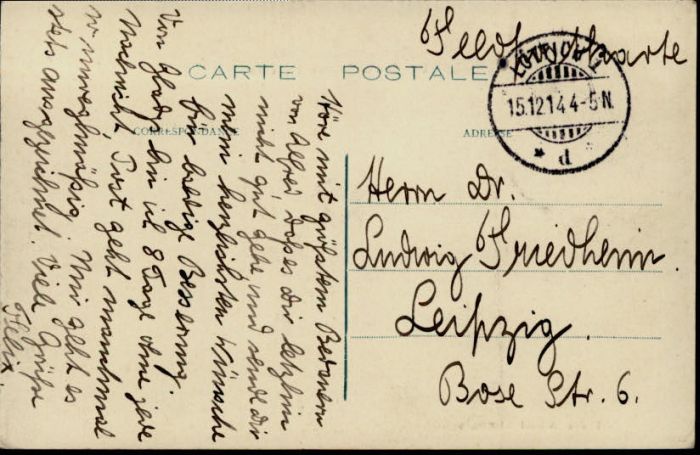 Feldpostkarte
CARTE POSTALE
15.12.14 4-5 N.
* d *
CORRESPONDANCE
ADRESSE
Herrn Dr.
Ludwig Friedheim.
Leipzig.
Bose Str. 6.
Höre mit größtem Bedauern
von Alfred daß es dir letzthin
nicht gut gehe und sende dir
mein herzlichsten Wünsche
für baldige Besserung.
Von bin ich 8 Tage ohne jede
Nachricht, Post geht manchmal
so unregelmäßig. Mir geht es
stets ausgezeichnet. Viele Grüße
Felix.